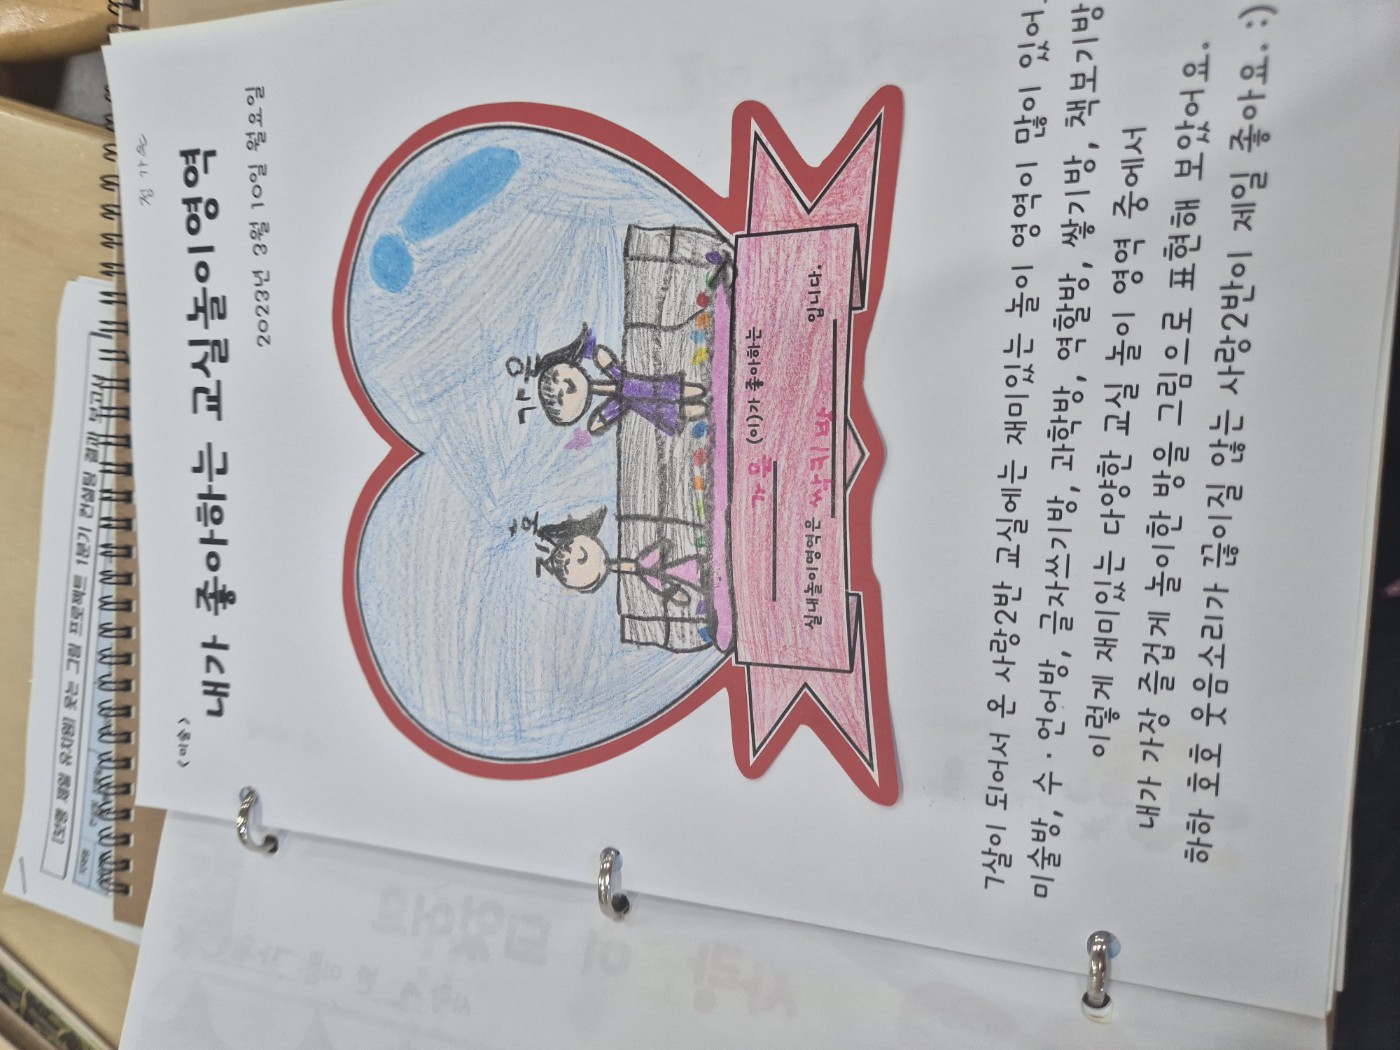 정가윤
<이음>
내가 좋아하는 교실놀이영역
2023년 3월 10일 월요일
지호
가윤
가윤 (이)가 좋아하는
실내놀이영역은 쌓기방 입니다.
7살이 되어서 온 사랑2반 교실에는 재미있는 놀이 영역이 많이 있어.
미술방, 수·언어방, 글자쓰기방, 과학방, 역할방, 쌓기방, 책보기방
이렇게 재미있는 다양한 교실 놀이 영역 중에서
내가 가장 즐겁게 놀이한 방을 그림으로 표현해 보았어요.
하하 호호 웃음소리가 끊이질 않는 사랑2반이 제일 좋아요. :)
프로젝트 1분기 컨설팅 결과 보고서